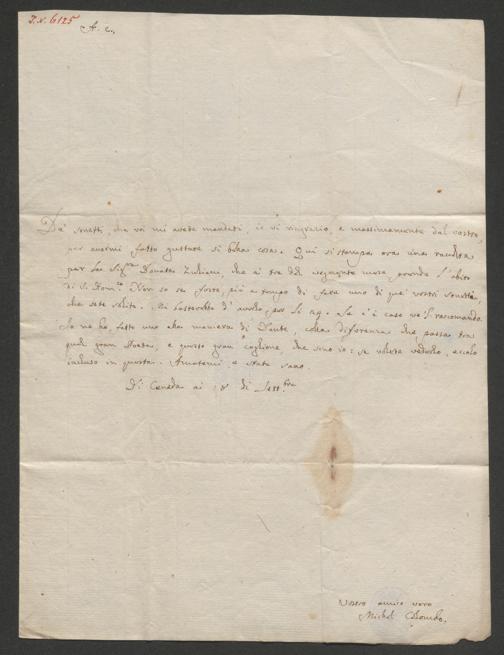 I.N. 6125
A. C.
De' sonetti, che voi mi avete mandati, io vi ringrazio, e massimamente dal vostro,
per avermi fatto gustare sì bella cosa. Qui si stampa ora una raccolta
per la Sig.ra Donata Zuliani, che ai tre del vegnente mese, prende l'abito
di S. Dom.co Non so se foste più a tempo di fare uno di que' vostri sonetti,
che sete solito. Mi basterebbe d' averlo per li 29. La è caso ve'l raccomando
Io ne ho fatto uno alla maniera di Dante, colla diferenza che passa tra
quel gran Poeta, e questo gran coglione, che sono io: se volete vederlo, eccolo
incluso in questa. Amatemi e state sano.
Di Ceneda ai 8 di Sett.bre
Vostro amico vero
Michel Colombo.